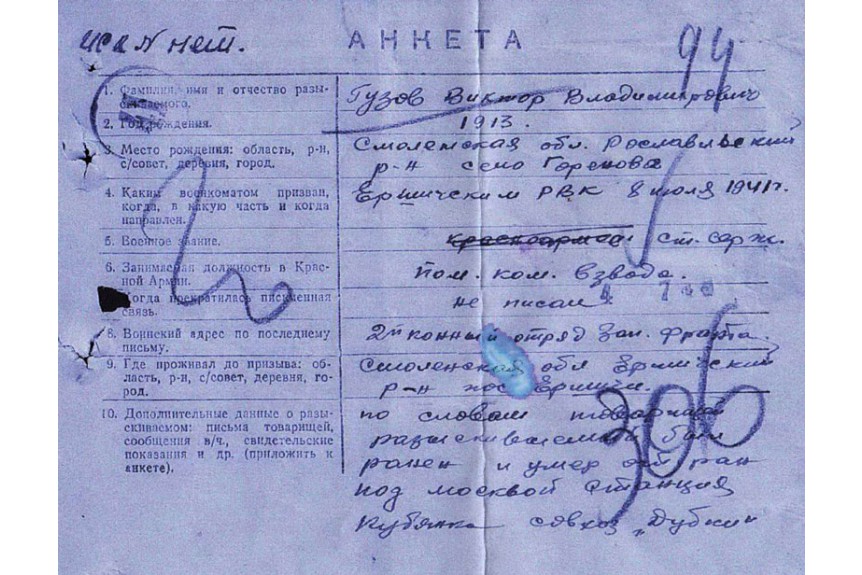 нет.
АНКЕТА
94
1. Фамилия, имя и отчество разыскиваемого.
Гузов Виктор Владимирович
2. Год рождения.
1913.
3. Место рождения: область, р-н, с/совет, деревня, город.
Смоленская обл. Рославльский
р-н село Горенова
4. Каким военкоматом призван, когда, в какую часть и когда направлен.
Ершичским РВК 8 июля 1941г.
5. Военное звание.
ст. серж.
6. Занимаемая должность в Красной Армии.
Пом. ком. взвода.
Когда прекратилась письменная связь.
не писал
8. Воинский адрес по последнему письму.
2й конный отряд Зап. фронта.
9. Где проживал до призыва: область, р-н, с/совет, деревня, город.
Смоленская обл Ершичский
р-н пос Ершичи.
10. Дополнительные данные о разыскиваемом: письма товарищей, сообщения в/ч., свидетельские показания и др. (приложить к анкете).
по словам товарищей
разыскиваемый был
ранен и умер от ран
под москвой станция
Кубянка совхоз „Дубки"
2
306